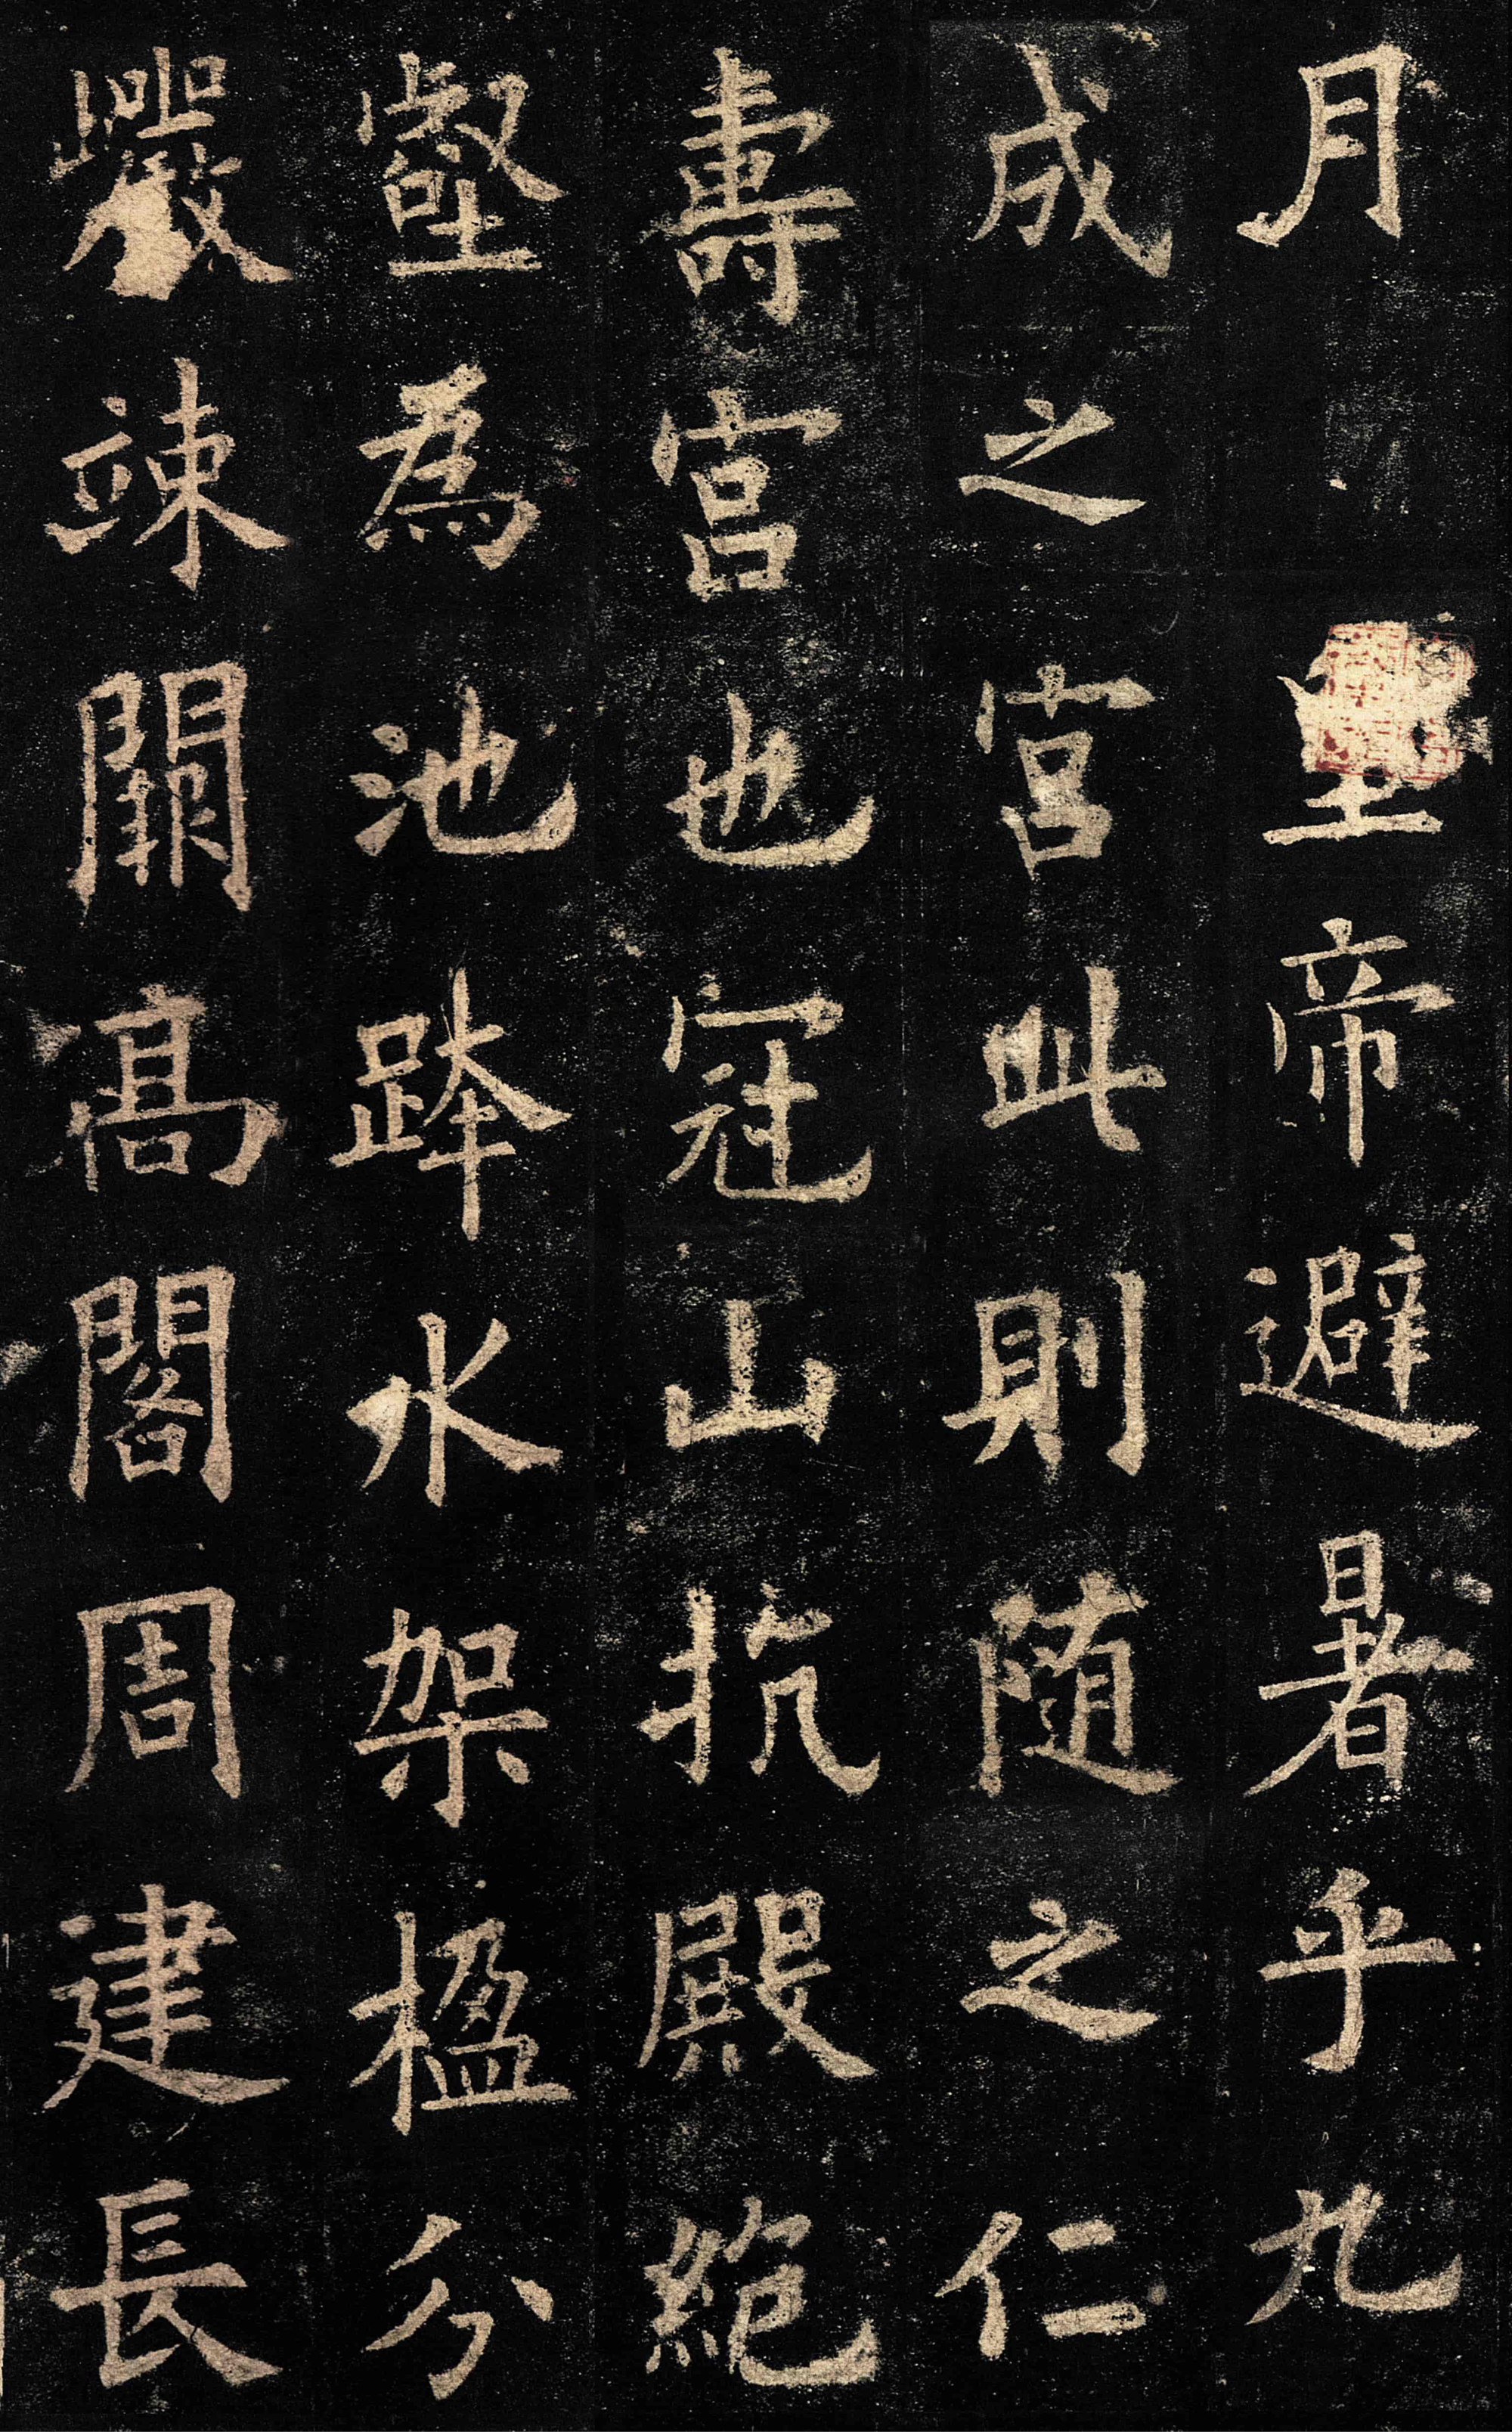 月皇帝避暑乎九
成之宫此則随之仁
壽宫也冠山抗殿絶
壑為池跨水架楹分
巖竦闕髙閣周建長